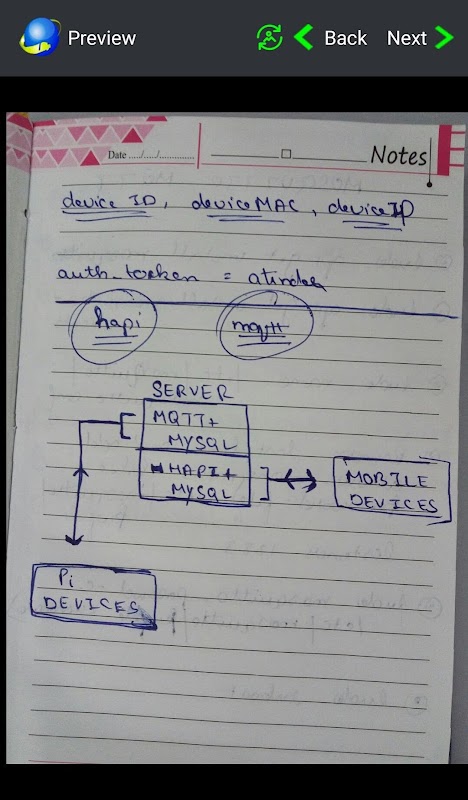 Preview
Back
Next
Date ..../..../..............
Notes
device ID, deviceMAC, deviceIP
auth_token =
hapi
mqtt
SERVER
MQTT+
MYSQL
HAPI+
MYSQL
MOBILE
DEVICES
Pi
DEVICES